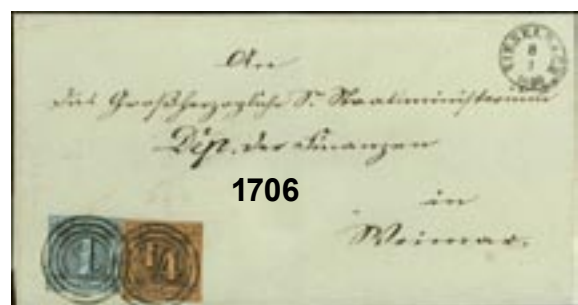 An
das Großherzogliche S. Staatsministerium
Dep. der Finanzen
1706
in
Weimar.
1 1/4